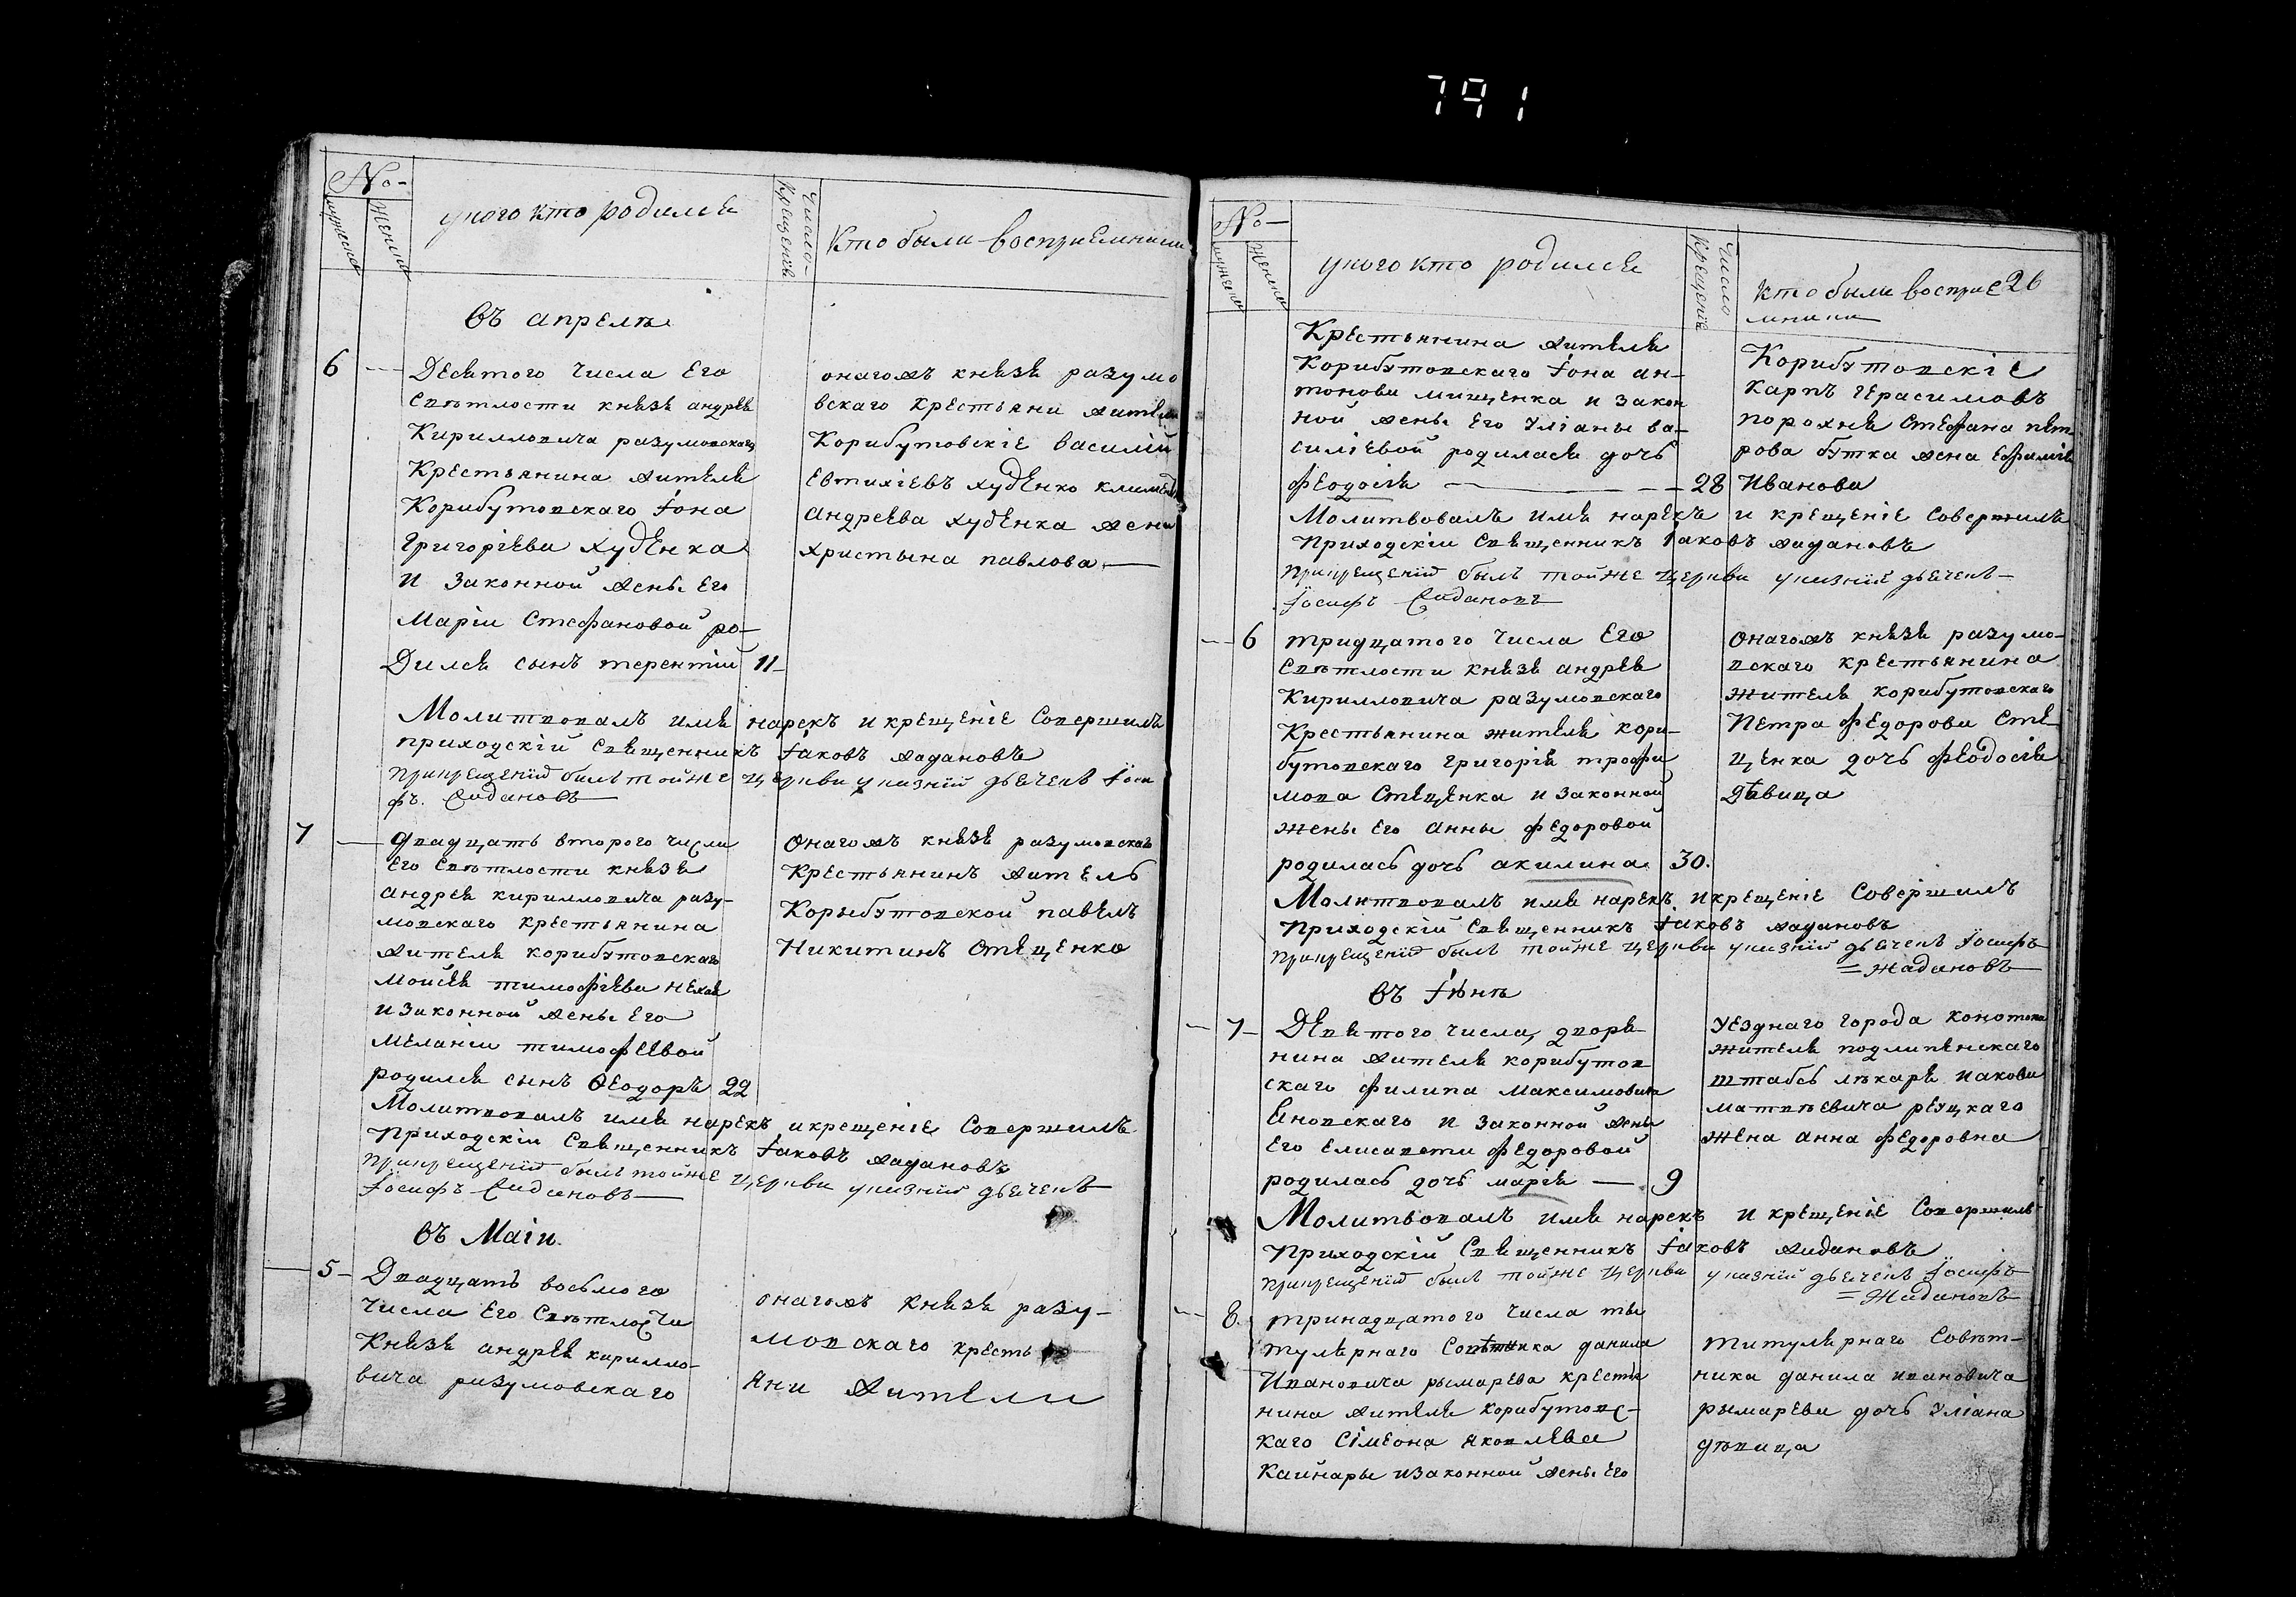 791
No-
мужеска
женска
у кого кто родился
Число
Крещенія
Кто были восприемники
въ апрелѣ
6 — Десятого числа Его
Свѣтлости князя андрея
Кирилловича разумовскаго
Крестьянина жителя
Корибутовскаго Іона
Григоріева худенка
и законной жены Его
Маріи Стефановой ро-
дился сынъ терентій 11-
онагожъ князя разумо
вскаго крестьяни жители
Корибутовскіе василій
Евтихіевъ худенко климен
андреева худенка жена
христына павлова —
Молитвовалъ имя нарекъ и крещеніе Совершилъ
приходскій Священникъ Іаковъ жадановъ
при крещеніи былъ тойже церкви дьячекъ Іоси
фъ. Жадановъ
7 — двадцать второго числа
Его Свѣтлости князя
андрея кирилловича разу-
мовскаго крестьянина
жителя корибутовскаго
мойсея тимофіева
и законной жены Его
меланіи тимофеевой
родился сынъ Ѳеодоръ 22
онагожъ князя разумовскаго
крестьянинъ житель
Корыбутовской павелъ
Никитинъ Стеценко
Молитвовалъ имя нарекъ и крещеніе Совершилъ
Приходскіи Священникъ Іаковъ жадановъ
При крещеніи былъ тойже церкви дьячекъ
Іосифъ Жадановъ
въ Маіи
— 5 - Двадцать восьмого
числа Его Свѣтлости
Князя андрея кирилло-
вича разумовскаго
онагожъ князя разу-
мовскаго кресть
яни жители
No-
мужеска
женска
у кого кто родился
Число
Крещенія
кто были восприе
мники
26
Крестьянина жителя
Корибутовскаго Іона ан-
тонова мищенка и закон
ной жены Его Уліаны ва-
силіевой родилася дочь
феодосія — 28
Корибутовскіе
карпъ герасимовъ
порохня Стефана пет
рова бутка жена Ефимія
Иванова
Молитвовалъ имя нарекъ и крещеніе Совершилъ
Приходскіи Священникъ Іаковъ жадановъ
При крещеніи былъ тойже церкви дьячекъ —
Іосифъ Жадановъ
— 6 тридцатого числа Его
Свѣтлости князя андрея
Кирилловича разумовскаго
Крестьянина жителя кори-
бутовскаго григорія трофи
мова Стеценка и законной
жены Его анны федоровой
родилась дочь акилина 30.
Онагожъ князя разумо-
вскаго крестьянина
жителя корибутовскаго
Петра федорова Сте
ценка дочь феодосія
дѣвица
Молитвовалъ имя нарекъ и крещеніе Совершилъ
Приходскій Священникъ Іаковъ жадановъ
При крещеніи былъ тойже церкви дьячекъ Іосифъ
= Жадановъ
въ Іюнѣ
— 7 - Девятого числа дворя-
нина жителя корибутов
скаго филипа максимовича
и законной жены
Его Елисавети федоровой
родилась дочь марія — 9
уезднаго города конотопа
жителя подлипенскаго
штабсъ лѣкаря иакова
матвѣевича рецкаго
жена анна федоровна
Молитвовалъ имя нарекъ и крещеніе Совершилъ
Приходскій Священникъ Іаковъ жадановъ
При крещеніи былъ тойже церкви дьячекъ Іосифъ
= Жадановъ
— 8. тринадцатого числа ти
тулярнаго Совѣтника данила
Ивановича рымарева крестья
нина жителя корибутовс-
каго Сімеона яковлева
Кайнары и законной жены Его
титулярнаго Совѣт-
ника данила ивановича
рымарева дочь Уліана
дѣвица